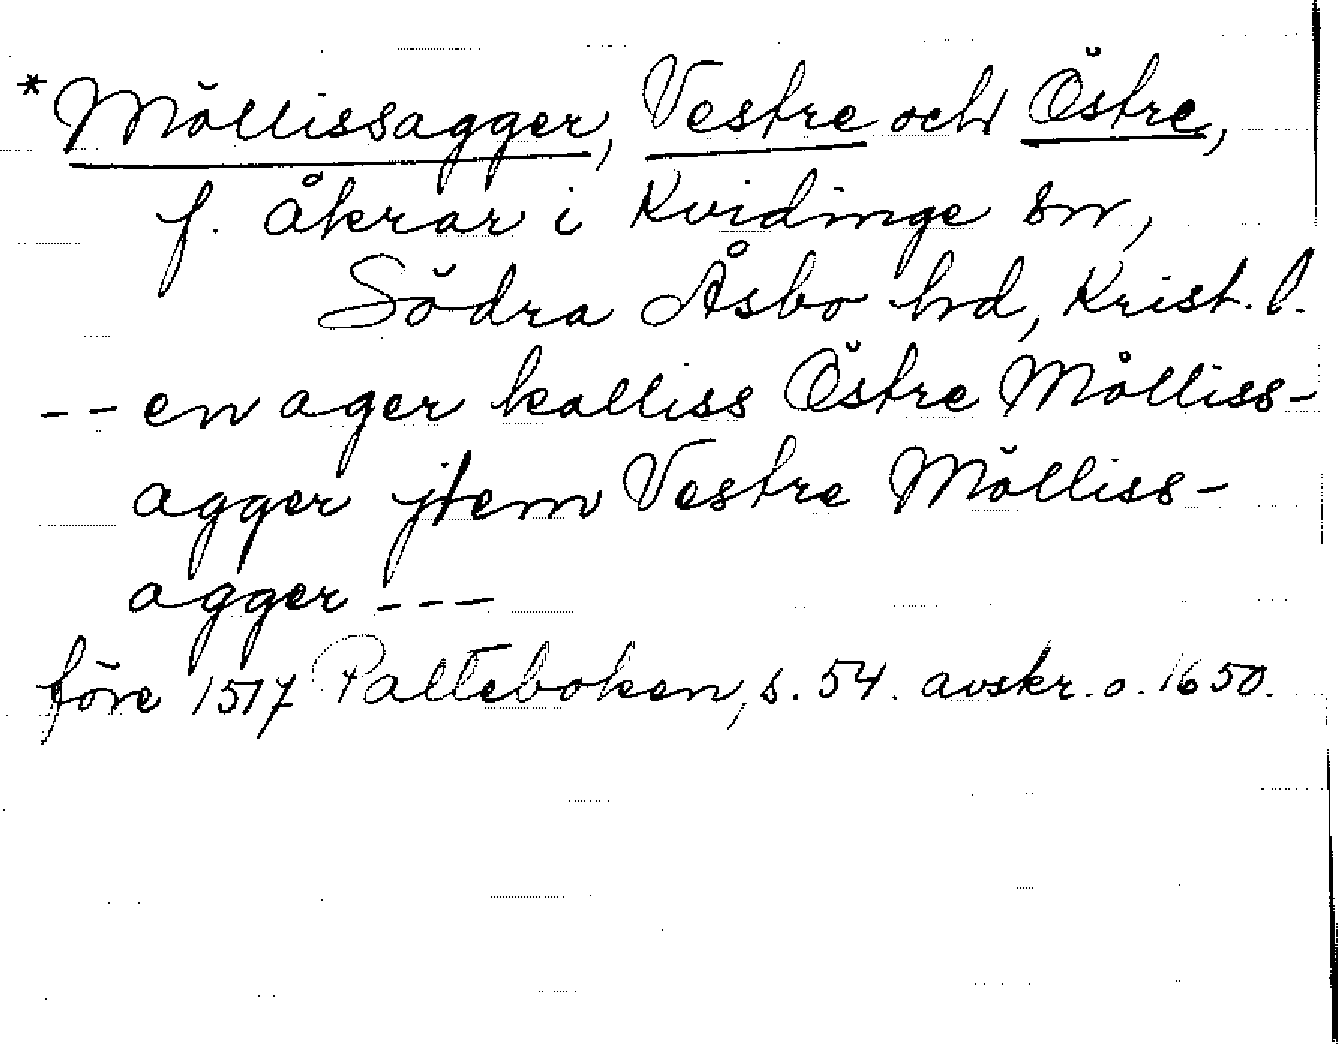 *Möllissagger, Vestre och Östre,
f. åkrar i Kvidinge sn,
Södra Åsbo hd, Krist. l.
-- en ager kalliss Östre Mölliss-
agger jtem Vestre Mölliss-
agger ---
före 1517 Palteboken, s. 54. avskr. o. 1650.